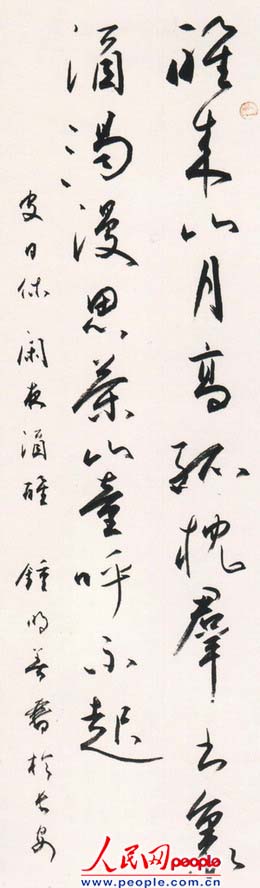 醒来山月高孤枕羣书裏
酒渴漫思茶山童呼不起
皮日休 闲夜酒醒 鍾明善書於长安
人民网 people
www.people.com.cn